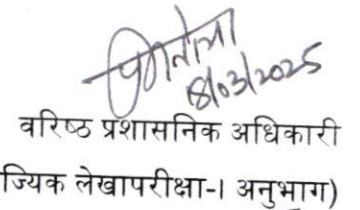 18/03/2025
वरिष्ठ प्रशासनिक अधिकारी
ज्यिक लेखापरीक्षा-I अनुभाग)